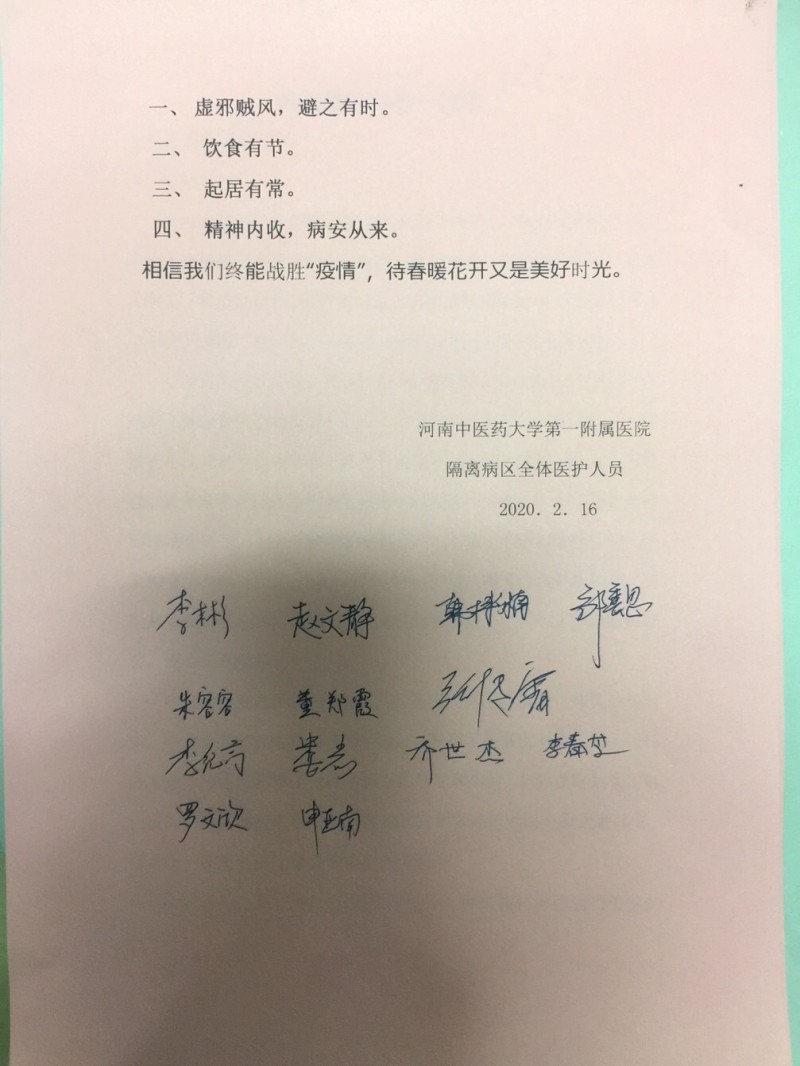 一、 虚邪贼风，避之有时。
二、 饮食有节。
三、 起居有常。
四、 精神内收，病安从来。
相信我们终能战胜“疫情”，待春暖花开又是美好时光。
河南中医药大学第一附属医院
隔离病区全体医护人员
2020. 2. 16
李彬 赵文静
朱容容 董郑霞
娄志 乔世杰
罗文欣 申亚南